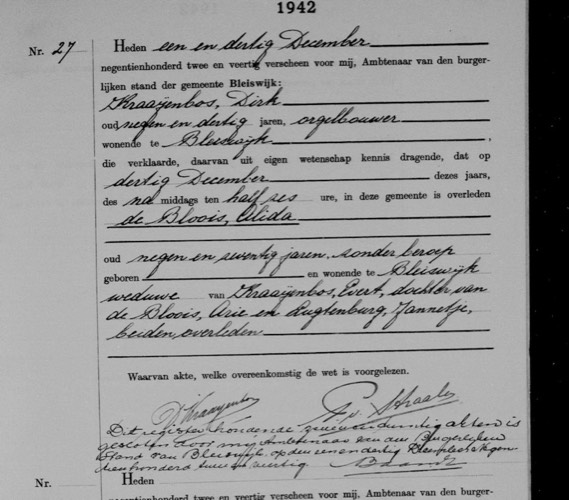 1942
Nr. 27
Heden een en dertig December
negentienhonderd twee en veertig verscheen voor mij, Ambtenaar van den burger-
lijken stand der gemeente Bleiswijk:
Kraaijenbos, Dirk
oud negen en dertig jaren, orgelbouwer
wonende te Bleiswijk,
die verklaarde, daarvan uit eigen wetenschap kennis dragende, dat op
dertig December dezes jaars,
des na middags ten half zes ure, in deze gemeente is overleden
de Bloois, Alida
oud negen en zeventig jaren, zonder beroep
geboren en wonende te Bleiswijk
weduwe van Kraaijenbos, Evert, dochter van
de Bloois, Arie en Lugtenburg, Jannetje,
beiden overleden
Waarvan akte, welke overeenkomstig de wet is voorgelezen.
D Kraaijenbos
Dit register houdende zeven en twintig akten is
gesloten door mij Ambtenaar van den Burgerlijken
Stand van Bleiswijk, op den een en dertig December negen
tienhonderd twee en veertig
Nr.
Heden
negentienhonderd twee en veertig verscheen voor mij, Ambtenaar van den burger-